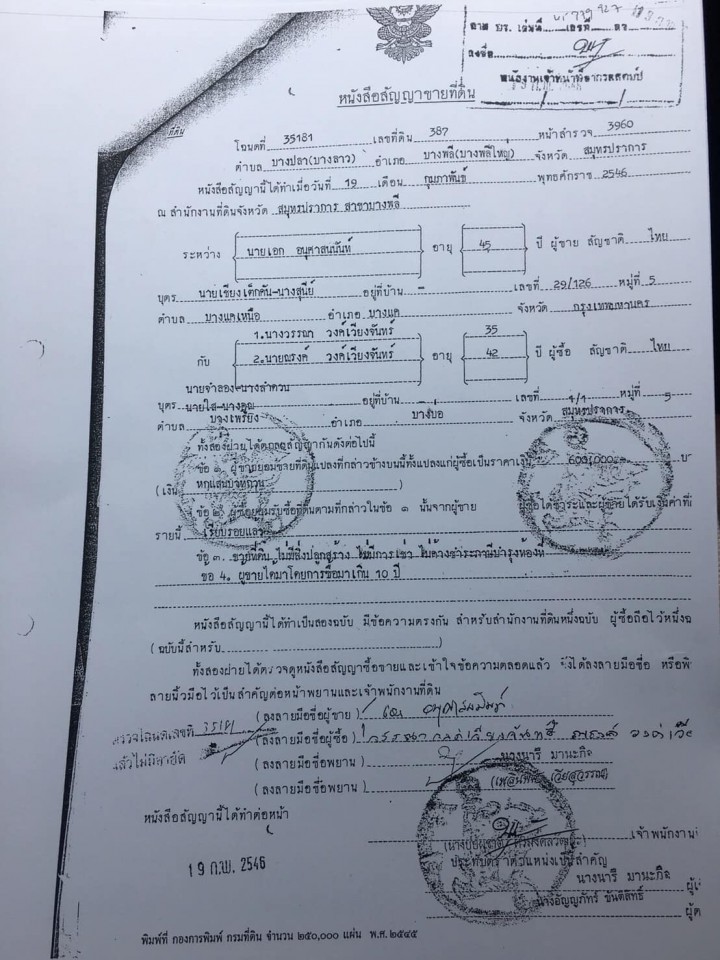 ตาม บร. เล่มที่ เลขที่ ลว
ลงชื่อ
พนักงานเจ้าหน้าที่อากรแสตมป์
หนังสือสัญญาขายที่ดิน
ที่ดิน
โฉนดที่ 35181 เลขที่ดิน 387 หน้าสำรวจ 3960
ตำบล บางปลา(บางลาว) อำเภอ บางพลี(บางพลีใหญ่) จังหวัด สมุทรปราการ
หนังสือสัญญานี้ได้ทำเมื่อวันที่ 19 เดือน กุมภาพันธ์ พุทธศักราช 2546
ณ สำนักงานที่ดินจังหวัด สมุทรปราการ สาขาบางพลี
ระหว่าง นายเอก อนุศาสนนันท์ อายุ 45 ปี ผู้ขาย สัญชาติ ไทย
บุตร นายเชียงเค็กคัน-นางสุนีย์ อยู่ที่บ้าน เลขที่ 29/126 หมู่ที่ 5
ตำบล บางแคเหนือ อำเภอ บางแค จังหวัด กรุงเทพมหานคร
1.นางวรรณา วงค์เวียงจันทร์ 35
กับ 2.นายณรงค์ วงค์เวียงจันทร์ อายุ 42 ปี ผู้ซื้อ สัญชาติ ไทย
นายจำลอง-นางลำดวน
บุตร นายใส-นางคูณ อยู่ที่บ้าน เลขที่ 1/1 หมู่ที่ 5
ตำบล บางเพรียง อำเภอ บางบ่อ จังหวัด สมุทรปราการ
ทั้งสองฝ่ายได้ตกลงสัญญากันดังต่อไปนี้
ข้อ ๑. ผู้ขายยอมขายที่ดินแปลงที่กล่าวข้างบนนี้ทั้งแปลงแก่ผู้ซื้อเป็นราคาเงิน 600,000
(เงิน หกแสนบาทถ้วน )
ข้อ ๒. ผู้ซื้อยอมรับซื้อที่ดินตามที่กล่าวในข้อ ๑ นั้นจากผู้ขาย ผู้ซื้อได้ชำระและผู้ขายได้รับเงินค่าที่
รายนี้ เรียบร้อยแล้ว
ข้อ ๓. ขายที่ดิน ไม่มีสิ่งปลูกสร้าง ไม่มีการเช่า ไม่ค้างชำระภาษีบำรุงท้องที่
ข้อ 4. ผู้ขายได้มาโดยการซื้อมาเกิน 10 ปี
หนังสือสัญญานี้ได้ทำเป็นสองฉบับ มีข้อความตรงกัน สำหรับสำนักงานที่ดินหนึ่งฉบับ ผู้ซื้อถือไว้หนึ่งฉ
(ฉบับนี้สำหรับ )
ทั้งสองฝ่ายได้ตรวจดูหนังสือสัญญาซื้อขายและเข้าใจข้อความตลอดแล้ว จึงได้ลงลายมือชื่อ หรือพิ
ลายนิ้วมือไว้เป็นสำคัญต่อหน้าพยานและเจ้าพนักงานที่ดิน
(ลงลายมือชื่อผู้ขาย)
ตรวจโฉนดเลขที่ 35181 (ลงลายมือชื่อผู้ซื้อ) วรรณา วงค์เวียงจันทร์ ณรงค์ วงค์เวี
แล้วไม่มีอายัด (ลงลายมือชื่อพยาน) นางนารี มานะกิจ
(ลงลายมือชื่อพยาน)
หนังสือสัญญานี้ได้ทำต่อหน้า
เจ้าพนักงาน
ประทับตราตำแหน่งเป็นสำคัญ
19 ก.พ. 2546
นางนารี มานะกิจ ผู้เ
นางอัญญภัทร์ ขันติสิทธิ์ ผู้ต
พิมพ์ที่ กองการพิมพ์ กรมที่ดิน จำนวน ๒๕๐,๐๐๐ แผ่น พ.ศ. ๒๕๔๕